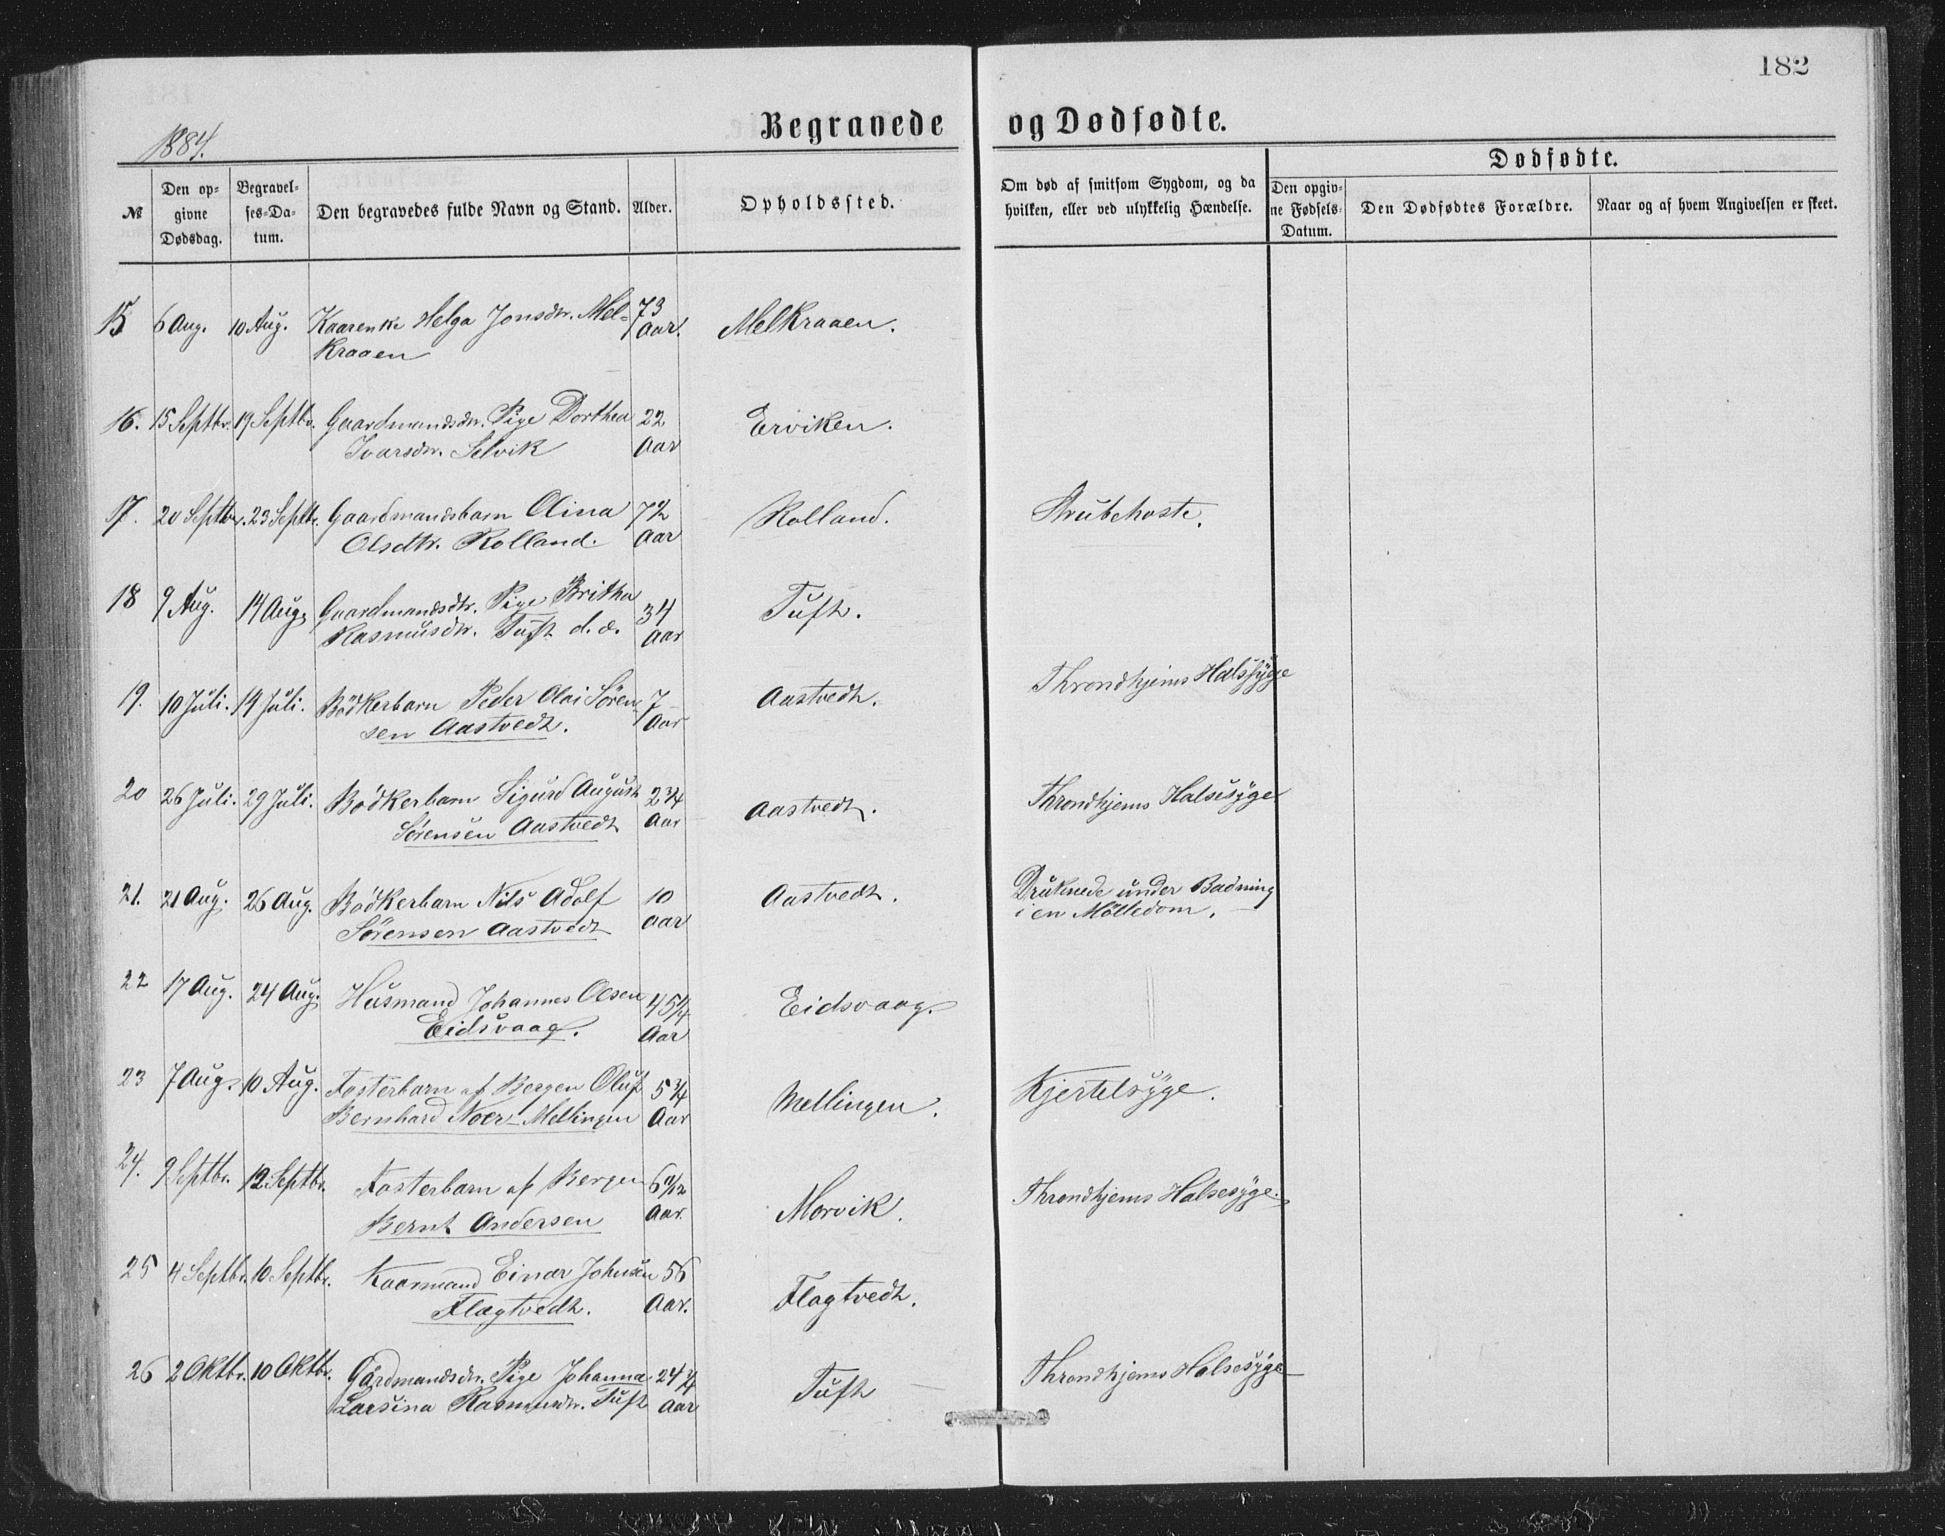 182
1884.
Begravede og Dødfødte.
Dødfødte.
№
Den op-
givne
Dødsdag.
Begravel-
ses-Da-
tum.
Den begravedes fulde Navn og Stand.
Alder.
Opholdssted.
Om død af smitsom Sygdom, og da
hvilken, eller ved ulykkelig Hændelse.
Den opgiv-
ne Fødsels-
Datum.
Den Dødfødtes Forældre.
Naar og af hvem Angivelsen er skeet.
15 6 Aug. 10 Aug. Kaarenke Helga Jonsdtr. Mel- 73 Melkraaen.
kraaen Aar.
16. 15 Septbr. 19 Septbr. Gaardmandsdtr. Pige Dorthea 22 Erviken.
Ivarsdtr. Selvik Aar
17. 20 Septbr. 23 Septbr. Gaardmandsbarn Olina 7½ Rolland. Strubehoste.
Olsdtr. Rolland. Aar
18 9 Aug. 14 Aug. Gaardmandsdtr. Pige Britha 34 Tuft.
Rasmusdtr. Tuft d. æ. Aar
19. 10 Juli. 14 Juli. Bödkerbarn Peder Olai Sören- 7 Aastvedt. Throndhjems Halssÿge
sen Aastvedt. Aar
20 26 Juli. 29 Juli. Bödkerbarn Sigurd August 2¾ Aastvedt. Throndhjems Halsesÿge
Sörensen Aastvedt Aar
21. 21 Aug. 26 Aug. Bödkerbarn Nils Adolf 10 Aastvedt. Druknede under Badning
Sörensen Aastvedt Aar i en Mölledam.
22 17 Aug. 24 Aug. Husmand Johannes Olsen 45¼ Eidsvaag.
Eidsvaag. Aar
23 7 Aug. 10 Aug. Fosterbarn af Bergen Oluf 5¾ Mellingen. Kjertelsÿge.
Bernhard Noer-Mellingen Aar
24. 9 Septbr. 12 Septbr. Fosterbarn af Bergen 6 Morvik. Throndhjems Halsesÿge.
Bernt Andersen Aar.
25 4 Septbr. 10 Septbr. Kaarmand Einar Johnsen 56 Flagtvedt.
Flagtvedt. Aar.
26 2 Oktbr. 10 Oktbr. Gårdmandsdtr. Pige Johanna 24¾ Tuft Throndhjems Halsesÿge
Larsina Rasmusdtr. Tuft Aar